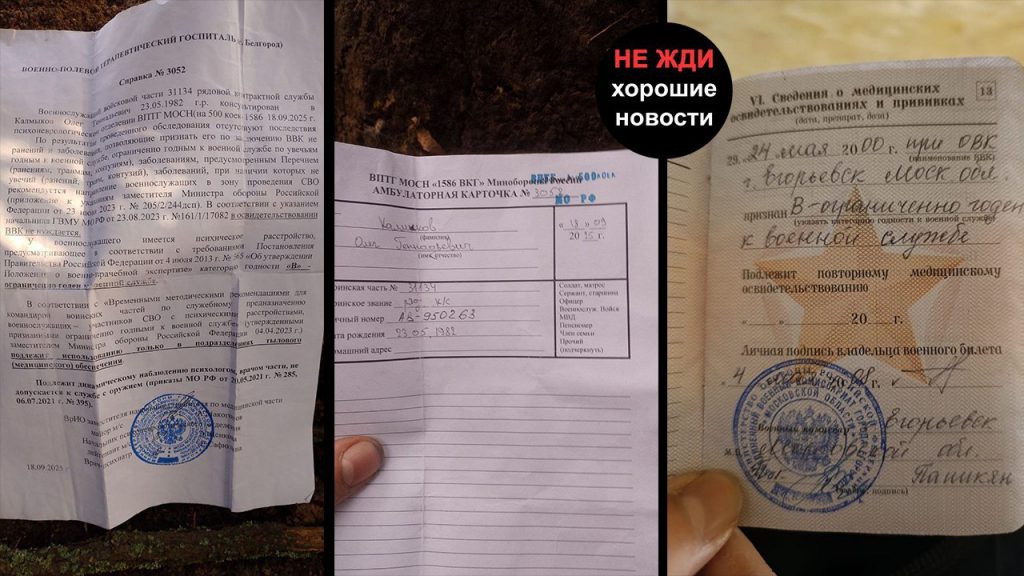 ВОЕННО-ПОЛЕВОЙ ТЕРАПЕВТИЧЕСКИЙ ГОСПИТАЛЬ г. Белгород)
Справка № 3052
Военнослужащий войсковой части 31134 рядовой контрактной службы
Калмыков Олег Геннадьевич 23.05.1982 г.р. консультирован в
психоневрологическом отделении ВПТГ МОСН(на 500 коек) 1586 18.09.2025 г.
По результатам проведенного обследования отсутствуют последствия
ранений и заболеваний, позволяющие признать его по заключению ВВК не
годным к военной службе, ограниченно годным к военной службе по увечьям
(ранениям, травмам, контузиям), заболеваниям, предусмотренным Перечнем
увечий (ранений, травм, контузий), заболеваний, при наличии которых не
рекомендуется направление военнослужащих в зону проведения СВО
приложение к указаниям заместителя Министра обороны Российской
Федерации от 23 2023 г. № 205/2/244дсп). В соответствии с указанием
начальника ГВМУ МО РФ от 23.08.2023 г. №161/1/1/17082 в освидетельствовании
ВВК не нуждается.
У военнослужащего имеется психическое расстройство,
предусматривающее в соответствии с требованиями Постановления
Правительства Российской Федерации от 4 июля 2013 г. № 565 «Об утверждении
Положения о военно-врачебной экспертизе» категорию годности «В» –
ограниченно годен к военной службе.
В соответствии с «Временными методическими рекомендациями для
командиров воинских частей по служебному предназначению
военнослужащих – участников СВО с психическими расстройствами,
признанными ограниченно годными к военной службе» (утвержденными
заместителем Министра обороны Российской Федерации 04.04.2023 г.)
подлежит использованию только в подразделениях тылового
(медицинского) обеспечения
Подлежит динамическому наблюдению психологом, врачом части, не
допускается к службе с оружием (приказы МО РФ от 20.05.2021 г. № 285,
06.07.2021 г. № 395).
ВрИО заместителя начальника госпиталя по медицинской части
майор м/с
18.09.2025 г.
ВПТГ МОСН «1586 ВКГ» Минобороны России
АМБУЛАТОРНАЯ КАРТОЧКА №
МО РФ
(фамилия)
Олег Геннадьевич
(имя, отчество)
« 18 » 09
20 г.
воинская часть № 31134
воинское звание к/с
личный номер АВ-950263
дата рождения 23.05.1982
домашний адрес
Солдат, матрос
Сержант, старшина
Офицер
Военнослуж. Войск
МВД
Пенсионер
Член семьи
Прочий
(подчеркнуть)
НЕ ЖДИ
хорошие
новости
13
VI. Сведения о медицинских
освидетельствованиях и прививках
(дата, препарат, доза)
23. 24 мая 2000 г. при ОВК
(наименование ВКК)
г. Егорьевск Моск обл.
признан В-ограниченно годен
(указать категорию годности к военной службе)
к военной службе
Подлежит повторному медицинскому
освидетельствованию
« » 20 г.
Личная подпись владельца военного билета
Военный комиссар
Егорьевск
ой обл.
Пашикян
М.П.